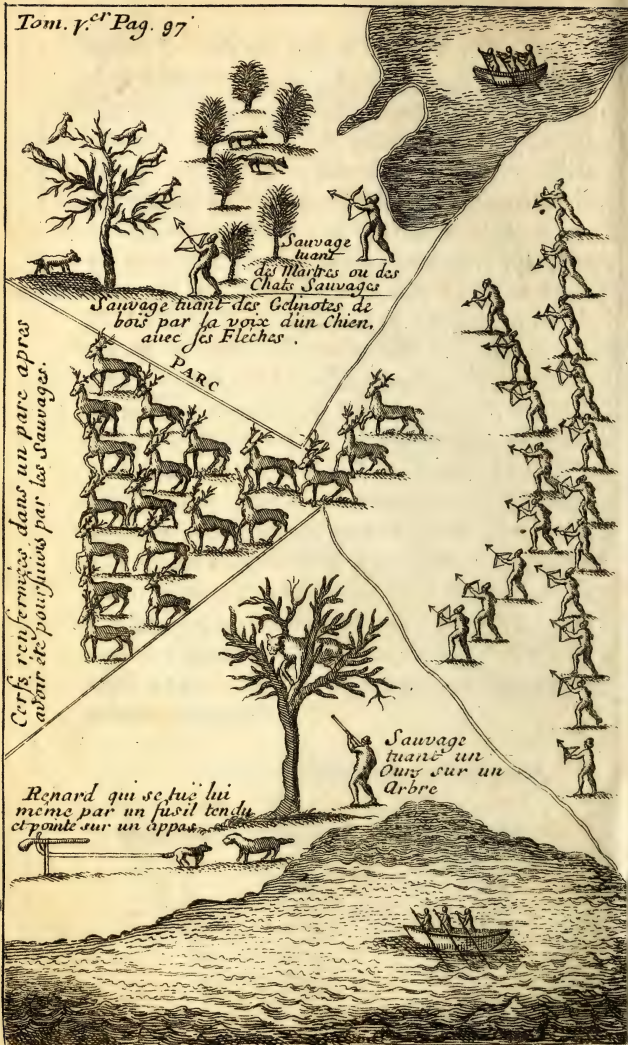 Tom. V.er Pag. 97
Sauvage
tuant
des Martres ou des
Chats Sauvages
Sauvage tuant des Gelinotes de
bois par la voix d'un Chien,
avec ses Fleches.
PARC
Cerfs, renfermées dans un parc apres
avoir été poursuivis par les Sauvages.
Sauvage
tuant un
Ours sur un
Arbre
Renard qui se tuë lui
meme par un fusil tendu
et pointe sur un appas